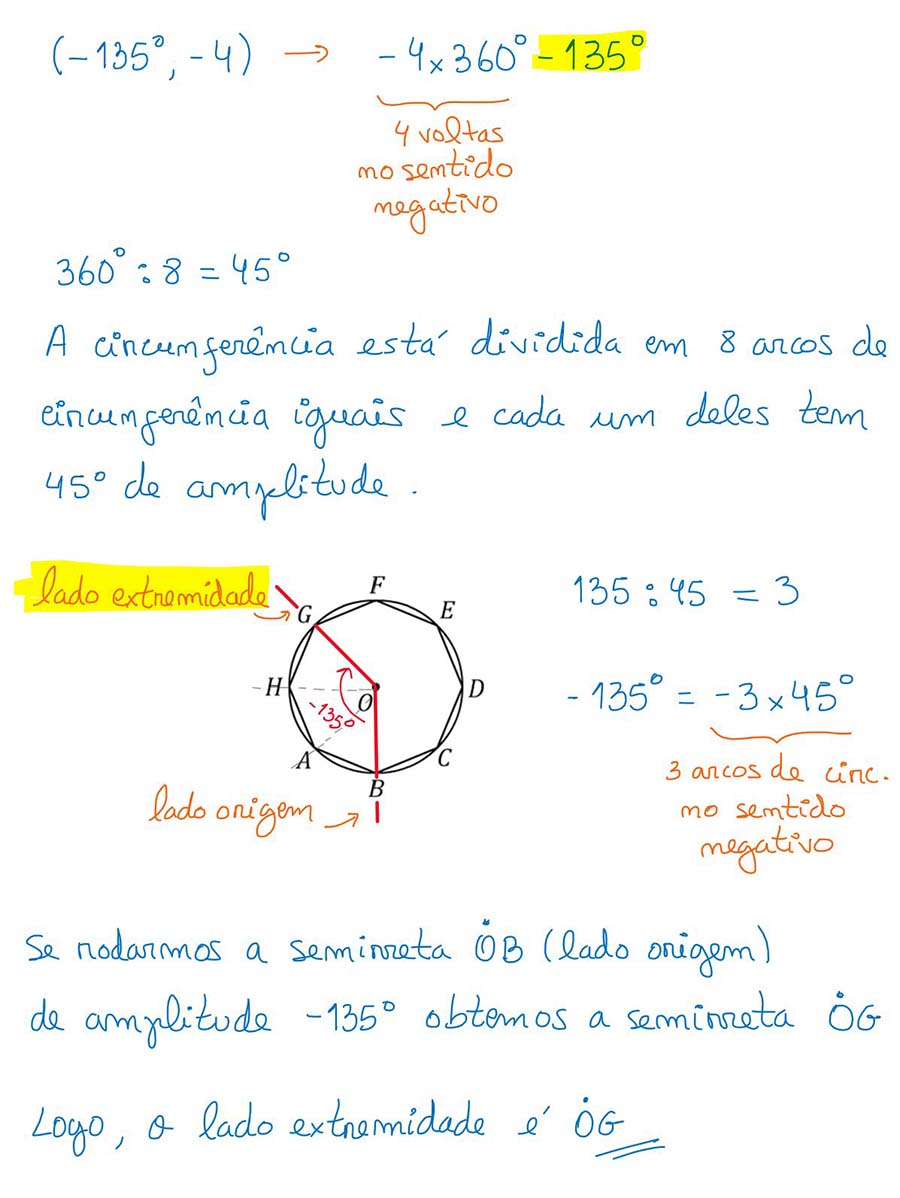 (-135°, -4) → -4×360° -135°
4 voltas
no sentido
negativo
360° : 8 = 45°
A circunferência está dividida em 8 arcos de
circunferência iguais e cada um deles tem
45° de amplitude.
lado extremidade
F
G
E
H
O
D
-135°
A
C
B
lado origem
135 : 45 = 3
-135° = -3×45°
3 arcos de circ.
no sentido
negativo
Se rodarmos a semirreta ȮB (lado origem)
de amplitude -135° obtemos a semirreta ȮG
Logo, o lado extremidade é ȮG